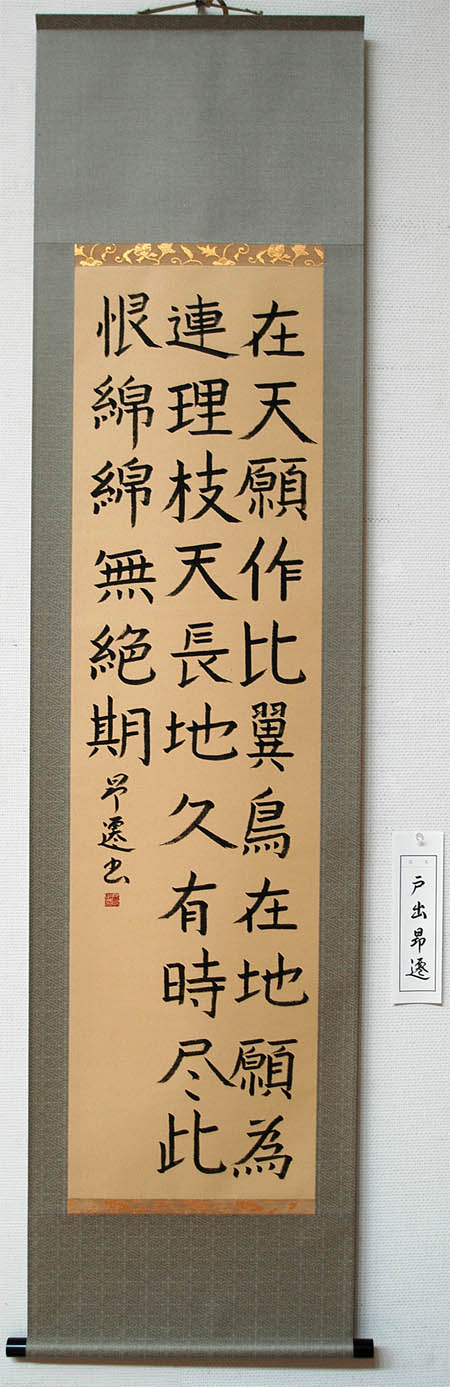 在天願作比翼鳥在地願為
連理枝天長地久有時尽此
恨綿綿無絶期
昴遷書
戸出昴遷